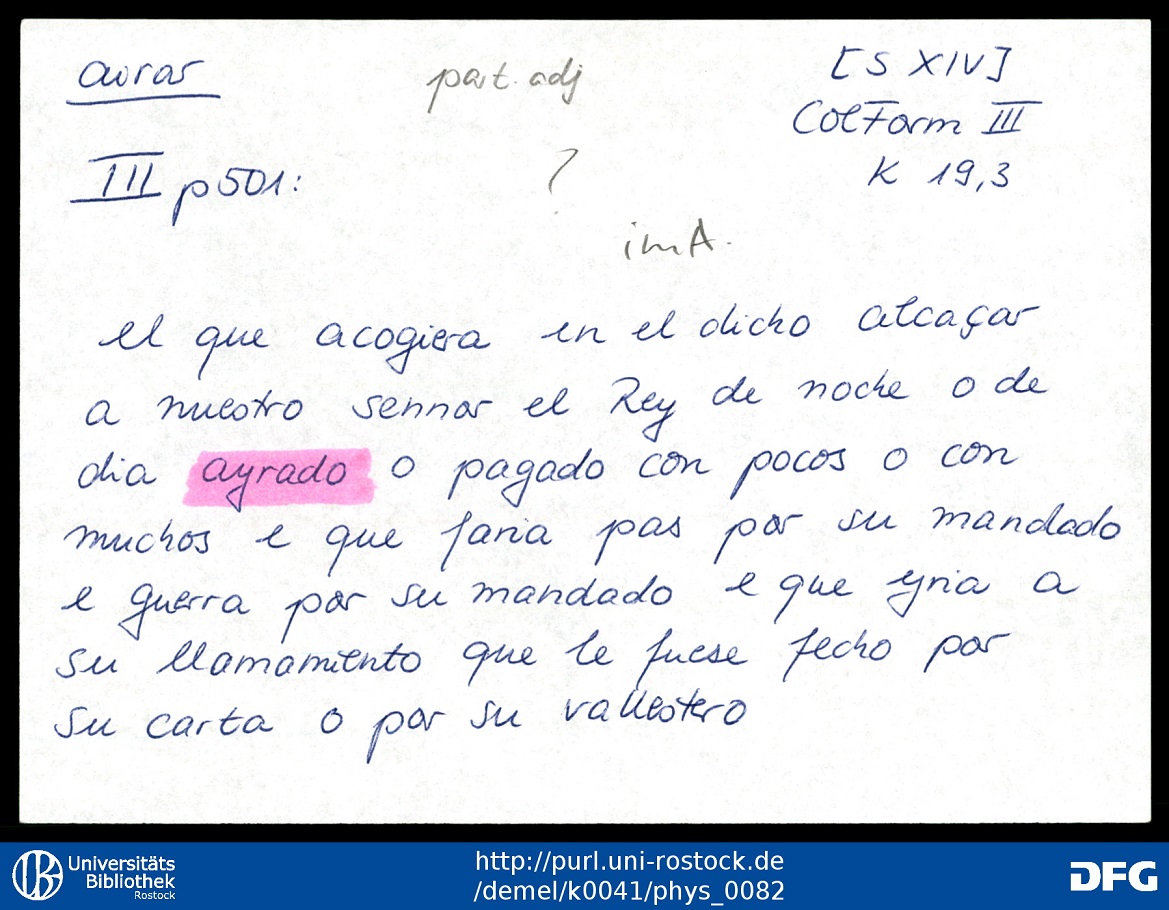 airar
part. adj
[S XIV]
ColForm III
III p 501:
?
K 19,3
im A.
el que acogiera en el dicho alcaçar
a nuestro sennor el Rey de noche o de
dia ayrado o pagado con pocos o con
muchos e que faria pas por su mandado
e guerra por su mandado e que yria a
su llamamiento que le fuese fecho por
su carta o por su vallestero
Universitäts
Bibliothek
Rostock
http://purl.uni-rostock.de
/demel/k0041/phys_0082
DFG